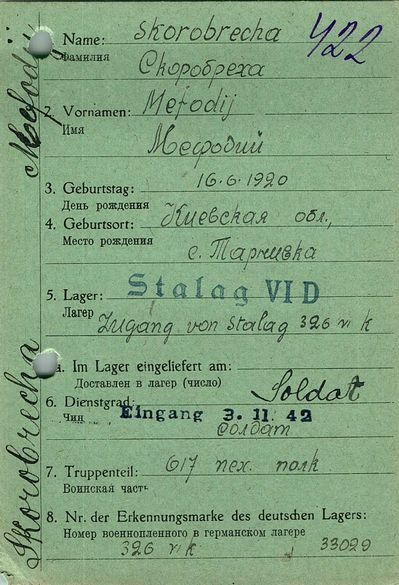 422
1. Name: Skorobrecha
Фамилия Скоробреха
2. Vornamen: Mefodij
Имя Мефодий
3. Geburtstag: 16.6.1920
День рождения
4. Geburtsort: Киевская обл.,
Место рождения с.
5. Lager: Stalag VI D
Лагер Zugang von Stalag 326 VI K
a. Im Lager eingeliefert am:
Доставлен в лагер (число)
6. Dienstgrad: Soldat
Чин Eingang 3. 11. 42
солдат
7. Truppenteil: 617 пех. полк
Воинская часть
8. Nr. der Erkennungsmarke des deutschen Lagers:
Номер военнопленного в германском лагере
326 VI K 33029
Skorobrecha Mefodij